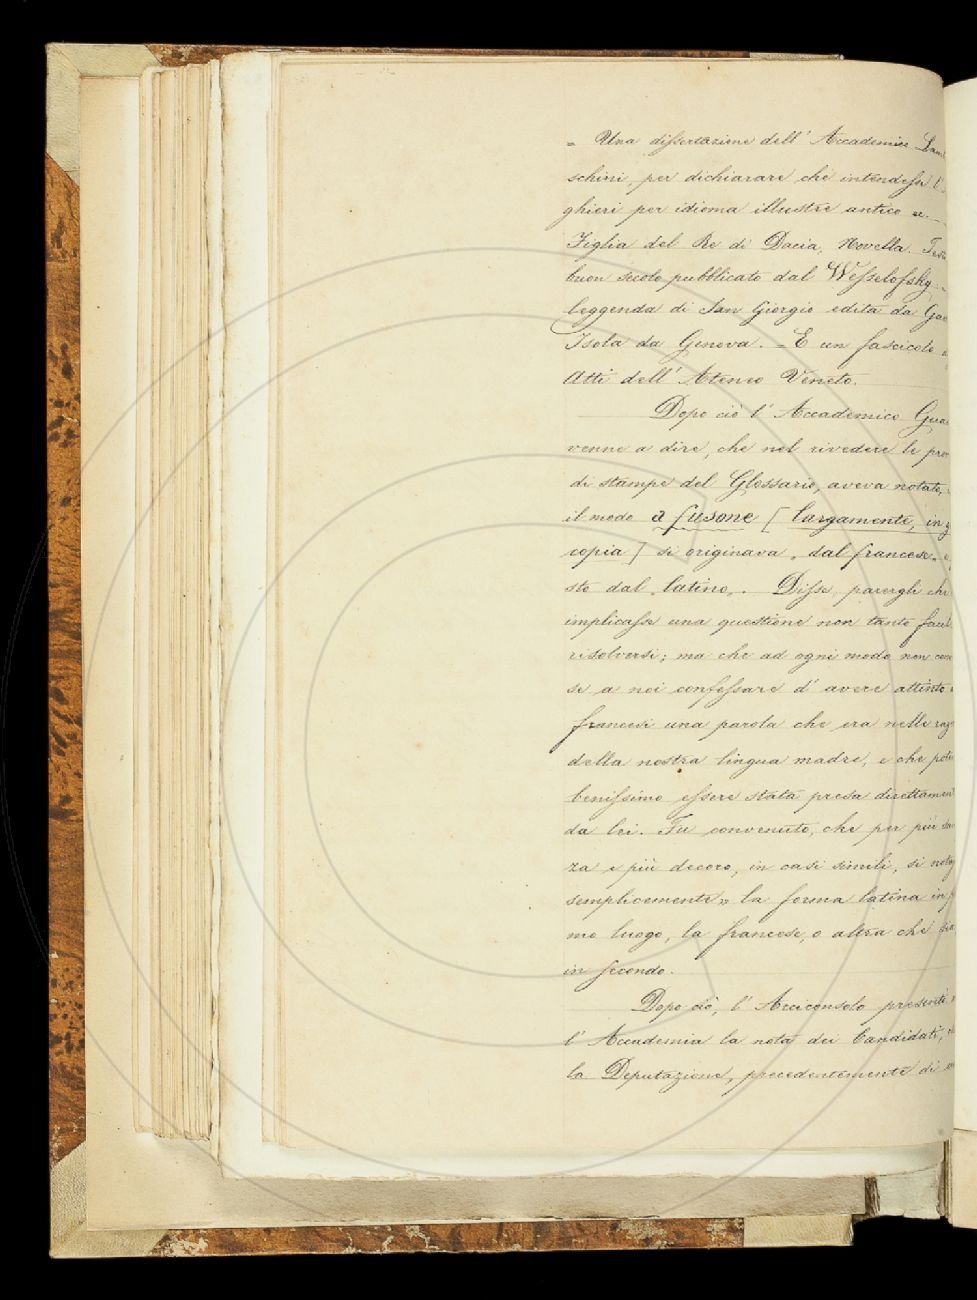 = Una dissertazione dell' Accademico Lam
schini, per dichiarare che intendesse l'
ghieri per idioma illustre antico ec. _
Figlia del Re di Dacia, Novella. Tes
buon secolo pubblicato dal Wesselofsky. _
leggenda di San Giorgio edita da Ga
Isola da Genova. _ E un fascicolo
Atti dell' Ateneo Veneto.
Dopo ciò l' Accademico Gua
venne a dire, che nel rivedere le pro
di stampe del Glossario, aveva notato,
il modo a fusone [ largamente, in g
copia ] si originava " dal francese
sto dal " latino ". Disse, parergli che
implicasse una questione non tanto facil
risolversi; ma che ad ogni modo non con
se a noi confessare d' avere attinto
francesi una parola che era nelle rag
della nostra lingua madre, e che pote
benissimo essere stata presa direttamen
da lei. Fu convenuto, che per più
za e più decoro, in casi simili, si nota
semplicemente " la forma latina in p
mo luogo, la francese, o altra che sia
in secondo.
Dopo ciò, l' Arciconsolo presentò
l' Accademia la nota dei Candidati,
la Deputazione, precedentemente di